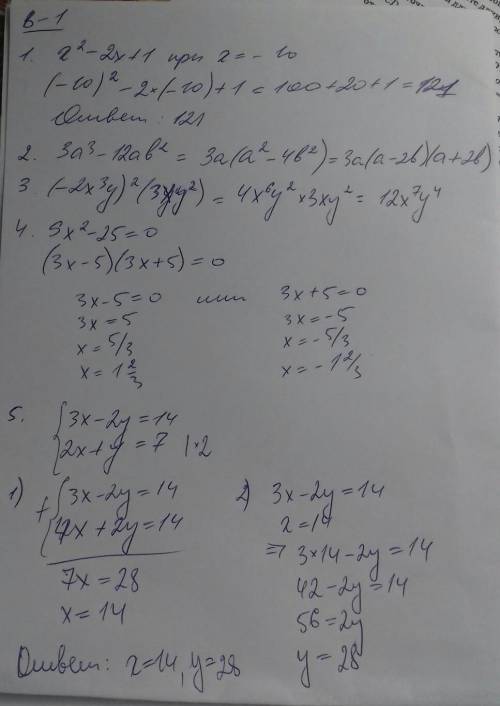 В-1
1. x²-2x+1 при x=-10
(-10)²-2×(-10)+1=100+20+1=121
Ответ: 121
2. 3a³-12ab²=3a(a²-4b²)=3a(a-2b)(a+2b)
3. (-2x³y)²(3xy²)=4x⁶y²×3xy²=12x⁷y⁴
4. 9x²-25=0
(3x-5)(3x+5)=0
3x-5=0 или 3x+5=0
3x=5 3x=-5
x=5/3 x=-5/3
x=1 2/3 x=-1 2/3
5. {3x-2y=14
{2x+y=7 |×2
1) +{3x-2y=14
{4x+2y=14
7x=28
x=14
2) 3x-2y=14
x=14
⇒ 3×14-2y=14
42-2y=14
56=2y
y=28
Ответ: x=14, y=28